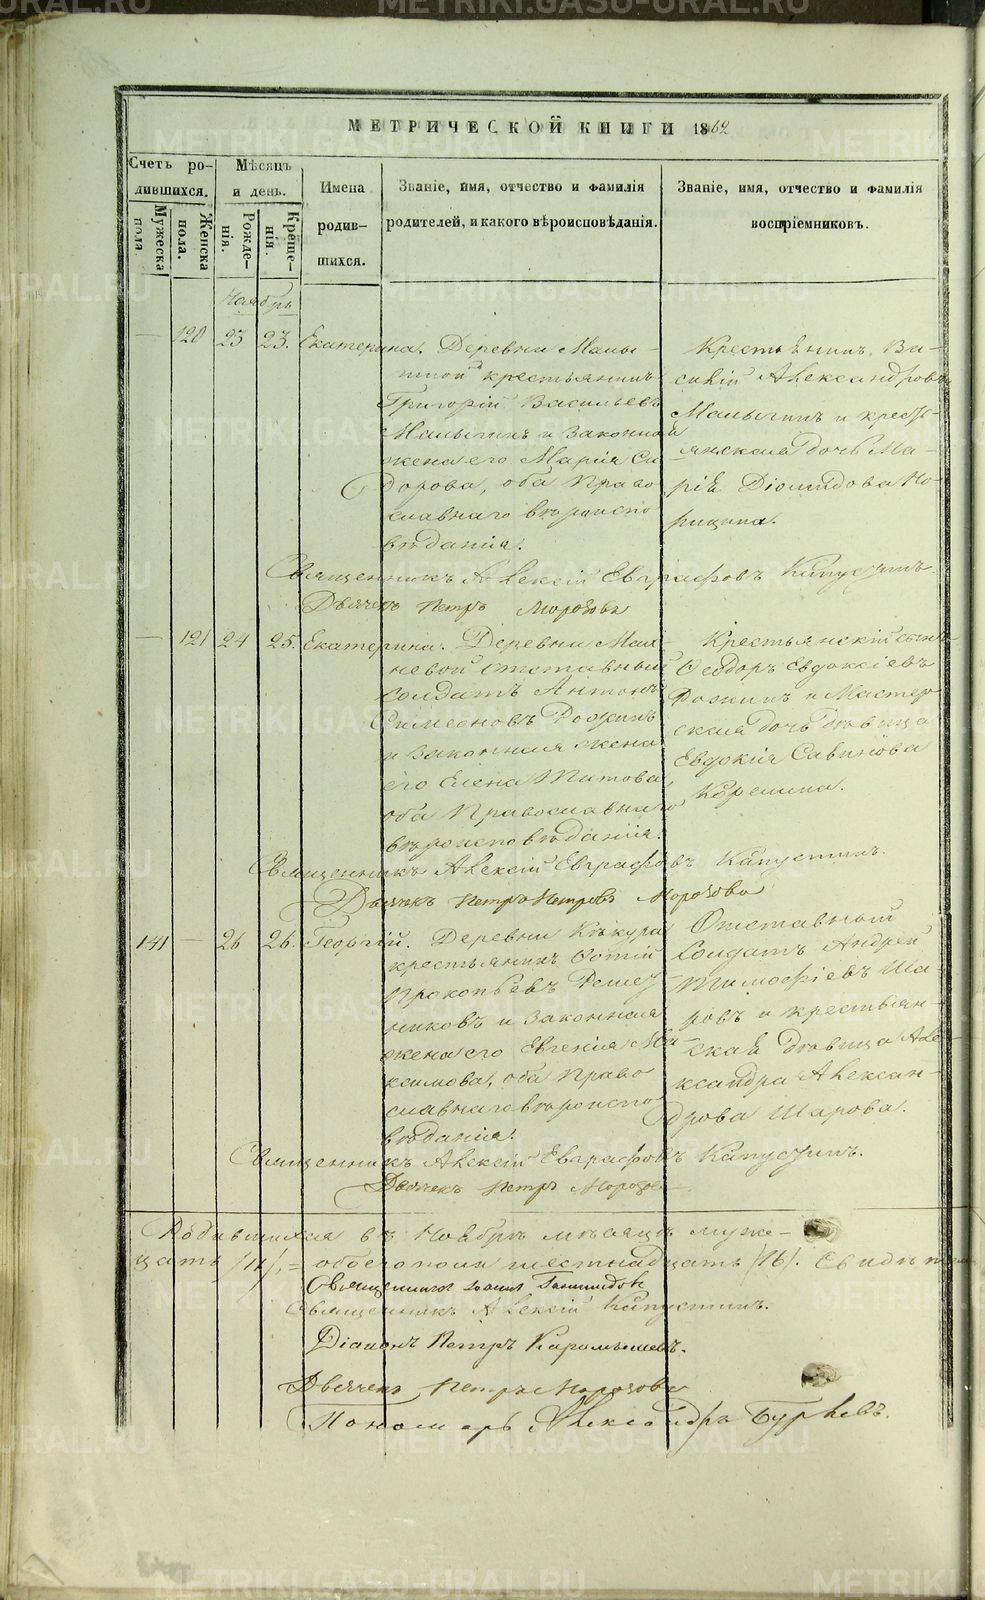 МЕТРИЧЕСКОЙ КНИГИ 1869
Счетъ ро-
дившихся.
Мужеска пола
Женска пола.
Мѣсяцъ
и день.
Рожде-
нія.
Креще-
нія.
Имена
родив-
шихся.
Званіе, имя, отчество и фамилія
родителей, и какого вѣроисповѣданія.
Званіе, имя, отчество и фамилія
воспріемниковъ.
Ноябрь
— 120 23 23. Екатерина. Деревни Малы-
гиной крестьянинъ
Григорій Васильевъ
Малыгинъ и законной
жена его Марія Си
дорова, оба Право
славнаго вѣроиспо
вѣданія.
Крестьянинъ Ва-
силій Александровъ
Малыгинъ и кресть-
янская дочь Ма-
рія Діомидова Но-
рицина.
Священникъ Алексій Евграфовъ Капустинъ
Дьячекъ Петръ Морозовъ
— 121 24 25. Екатерина. Деревни Мая-
невой отставный
солдатъ Антонъ
Симеоновъ Рожинъ
и законная жена
его Елена Титова
оба Православнаго
вѣроисповѣданія.
Крестьянскій сынъ
Ѳеодоръ Евдокіевъ
Рожинъ и Мастеро
ская дочь дѣвица
Евдокія Савинова
Корелина.
Священникъ Алексій Евграфовъ Капустинъ.
Дьячекъ Петръ Петровъ Морозовъ
141 — 26 26. Георгій. Деревни Кекура
крестьянинъ Фотій
Прокопьевъ Решет
никовъ и законная
жена его Евгенія Ма
ксимова, оба Право
славнаго вѣроиспо
вѣданія.
Отставный
солдатъ Андрей
Тимофіевъ Ша-
ровъ и крестьян-
ская дѣвица Але-
ксандра Алексан-
дрова Шарова.
Священникъ Алексій Евграфовъ Капустинъ.
Дьячекъ Петръ Морозовъ
Родившихся въ Ноябрѣ мѣсяцѣ муже-
обоего пола шестнадцать /16/.
Священникъ Іоаннъ
Священникъ Алексій Капустинъ.
Діаконъ Петръ Карамышевъ.
Дьячекъ Петръ Морозовъ
Пономарь Александръ Бурлевъ.